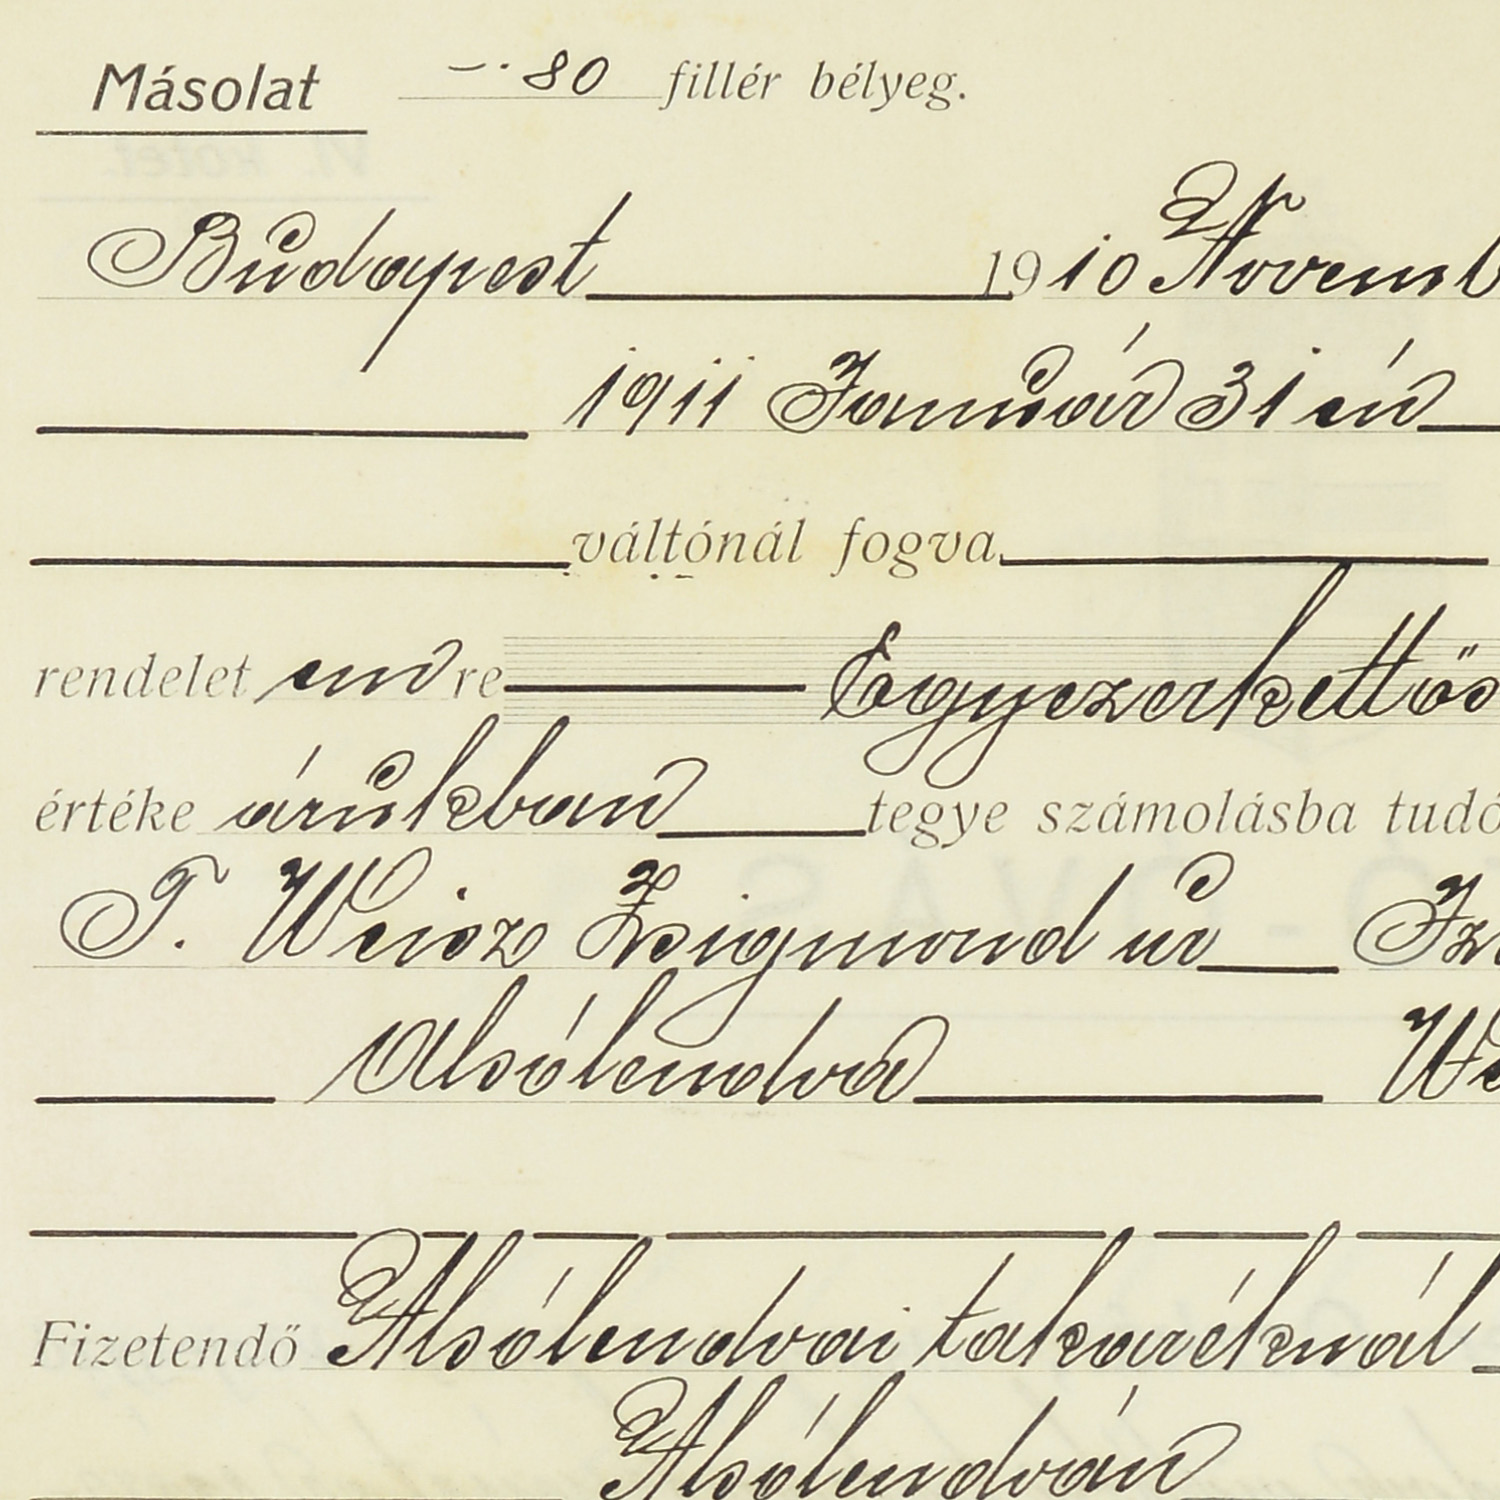 Másolat —·80 fillér bélyeg.
Budapest 1910 Novemb
1911 Január 31 én
váltónál fogva
rendelet em re Egyezerkettős
értéke árukban tegye számolásba tudó
T. Weisz Zsigmond úr
Alsólendva We
Fizetendő Alsólendvai takaréknál
Alsólendván